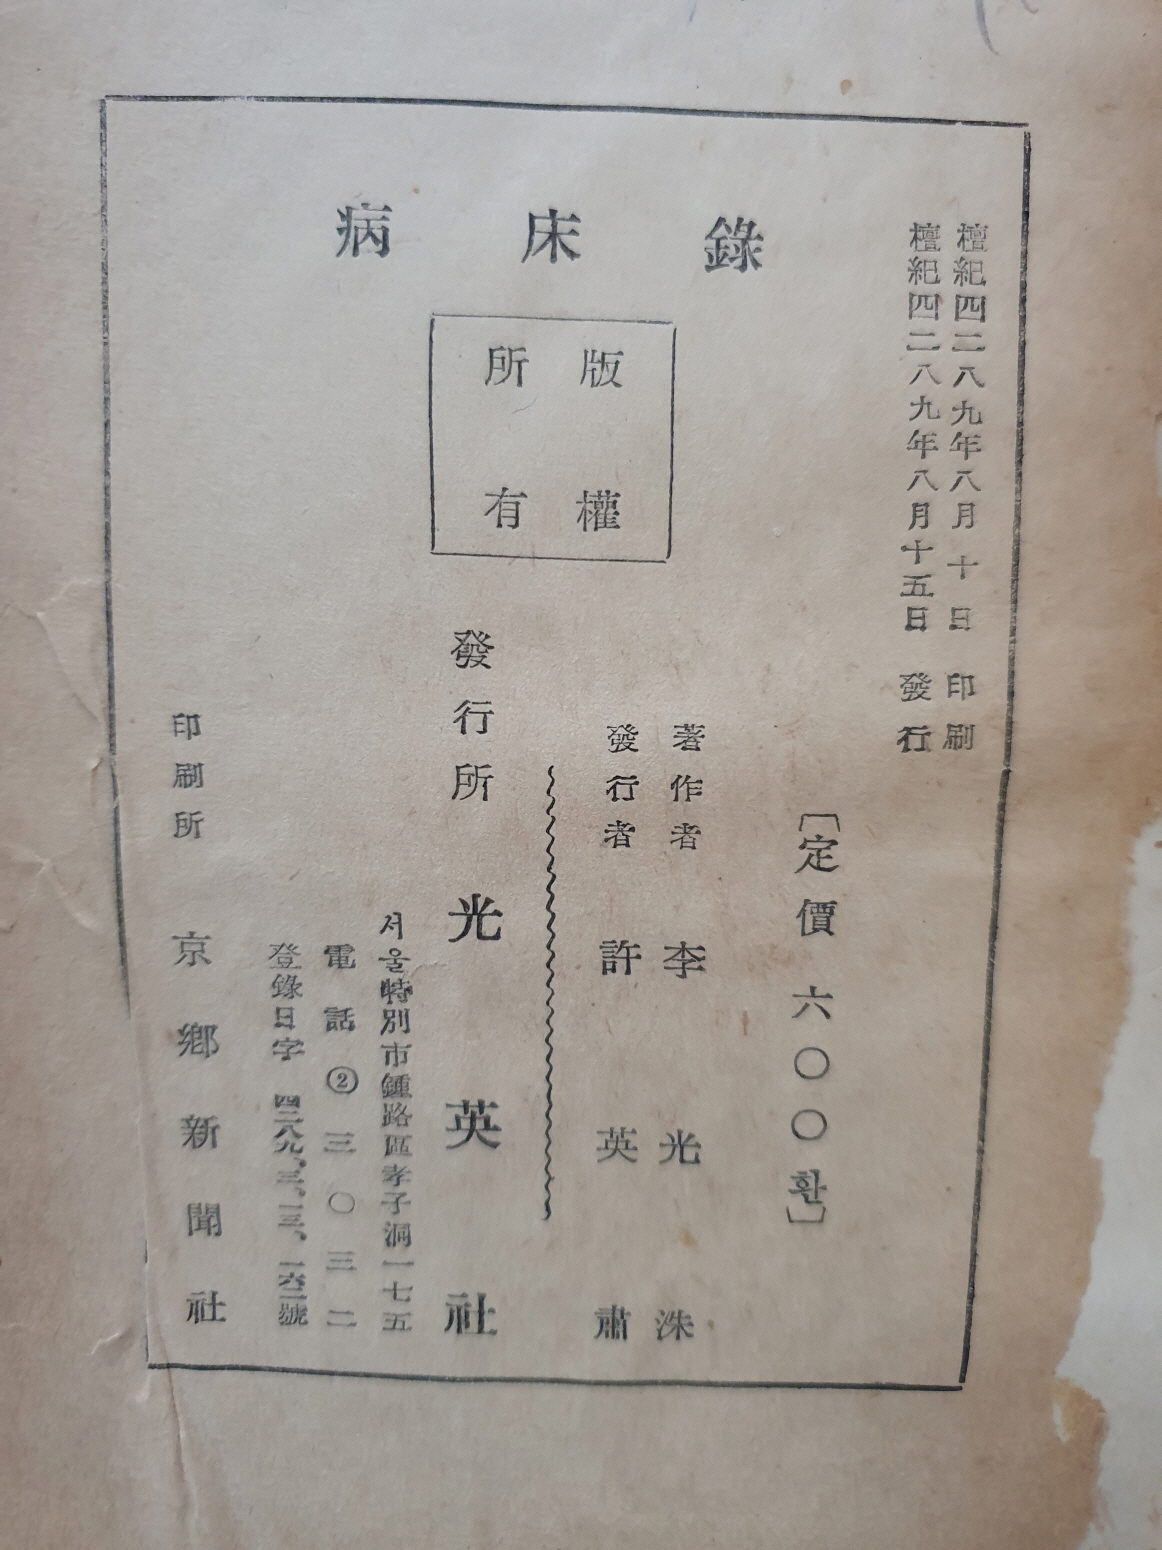 病床錄
版權
所有
檀紀四二八九年八月十日 印刷
檀紀四二八九年八月十五日 發行
[定價 六〇〇환]
著作者 李光洙
發行者 許英肅
發行所 光英社
서울特別市鍾路區孝子洞一七五
電話②三〇三二
登錄日字 四二八九、三、一三、一六二號
印刷所 京鄕新聞社